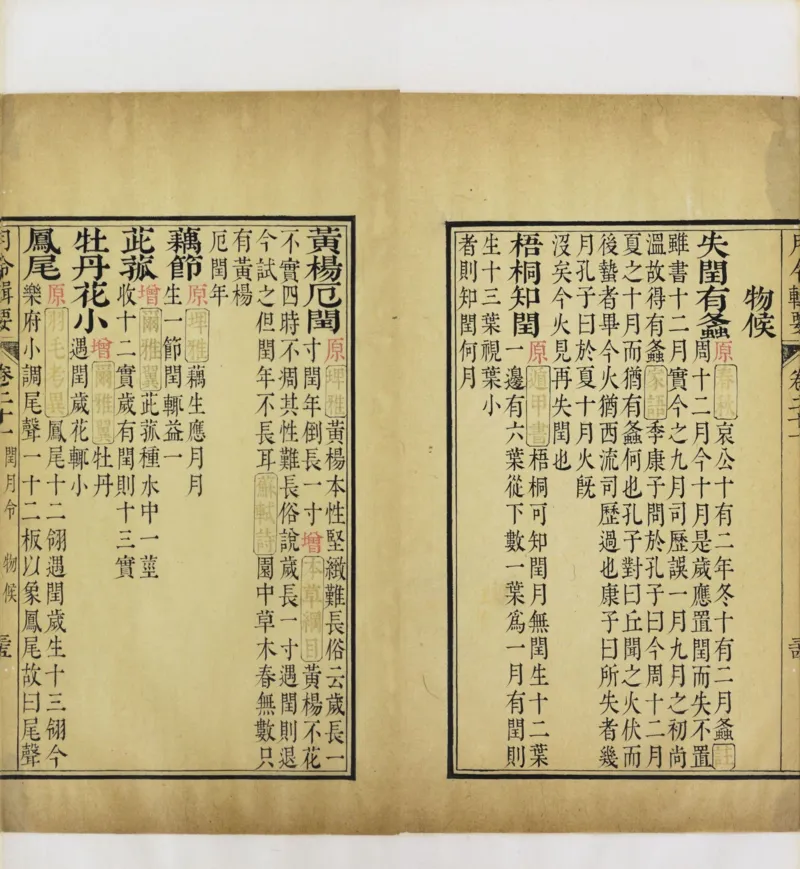 月令輯要 卷二十一
物候
失閏有螽 原春秋哀公十有二年冬十有二月螽註
周十二月今十月是歲應置閏而失不置
雖書十二月實今之九月司歷誤一月九月之初尚
溫故得有螽家語季康子問於孔子曰今周十二月
夏之十月而猶有螽何也孔子對曰丘聞之火伏而
後蟄者畢今火猶西流司歷過也康子曰所失者幾
月孔子曰於夏十月火旣
沒矣今火見再失閏也
梧桐知閏 原遁甲書梧桐可知閏月無閏生十二葉
一邊有六葉從下數一葉爲一月有閏則
生十三葉視葉小
者則知閏何月
黃楊厄閏 原埤雅黃楊本性堅緻難長俗云歲長一
寸閏年倒長一寸增本草綱目黃楊不花
不實四時不凋其性難長俗說歲長一寸遇閏則退
今試之但閏年不長耳蘇軾詩園中草木春無數只
有黃楊
厄閏年
藕節 原埤雅藕生應月月
生一節閏輒益一
茈菰 增爾雅翼茈菰種水中一莖
收十二實歲有閏則十三實
牡丹花小 增爾雅翼牡丹
遇閏歲花輒小
鳳尾 原羽毛考異鳳尾十二翎遇閏歲生十三翎今
樂府小調尾聲一十二板以象鳳尾故曰尾聲
月令輯要 卷二十一 閏月令 物候